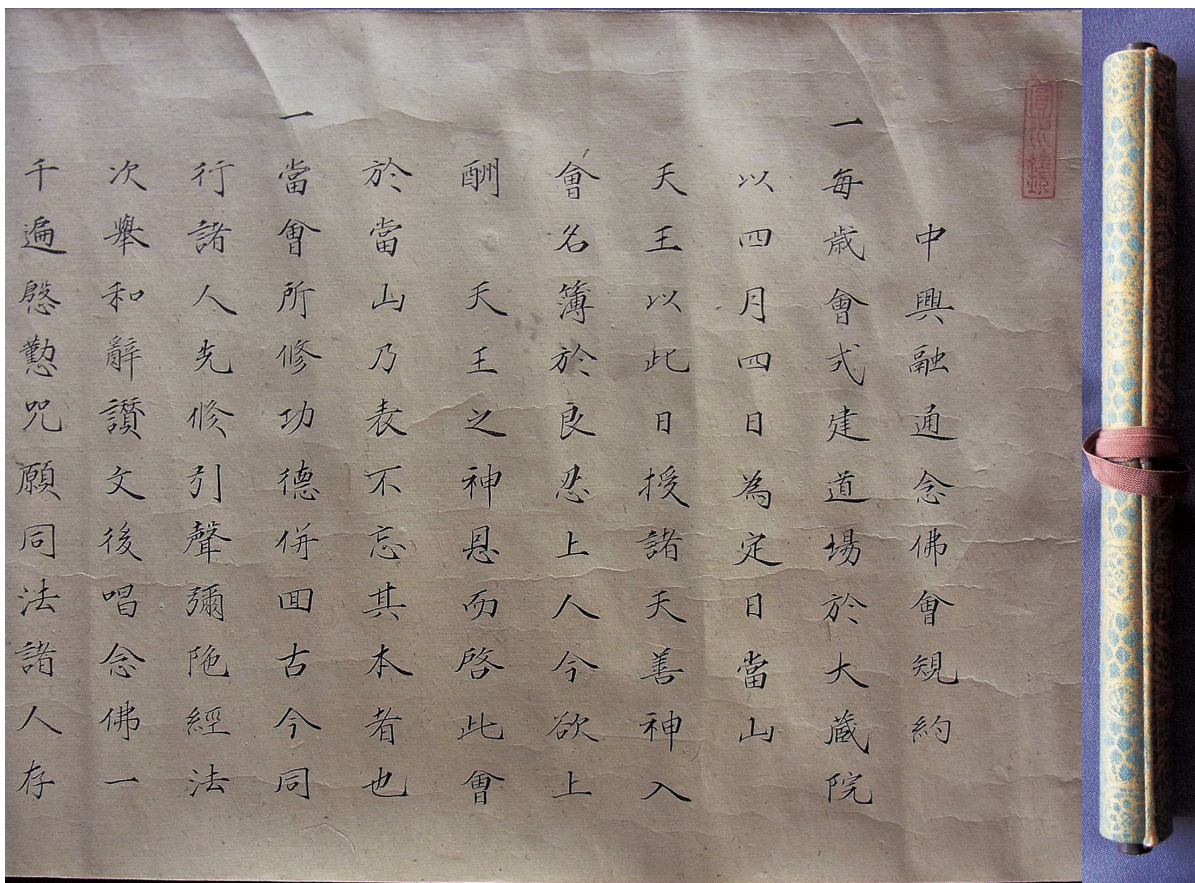 中興融通念佛會規約
一每歲會式建道場於大藏院
以四月四日為定日當山
天王以此日授諸天善神入
會名簿於良忍上人今欲上
酬天王之神恩而啓此會
於當山乃表不忘其本者也
一當會所修功德併回古今同
行諸人先修引聲彌陁經法
次舉和辭讃文後唱念佛一
千遍慇懃咒願同法諸人存